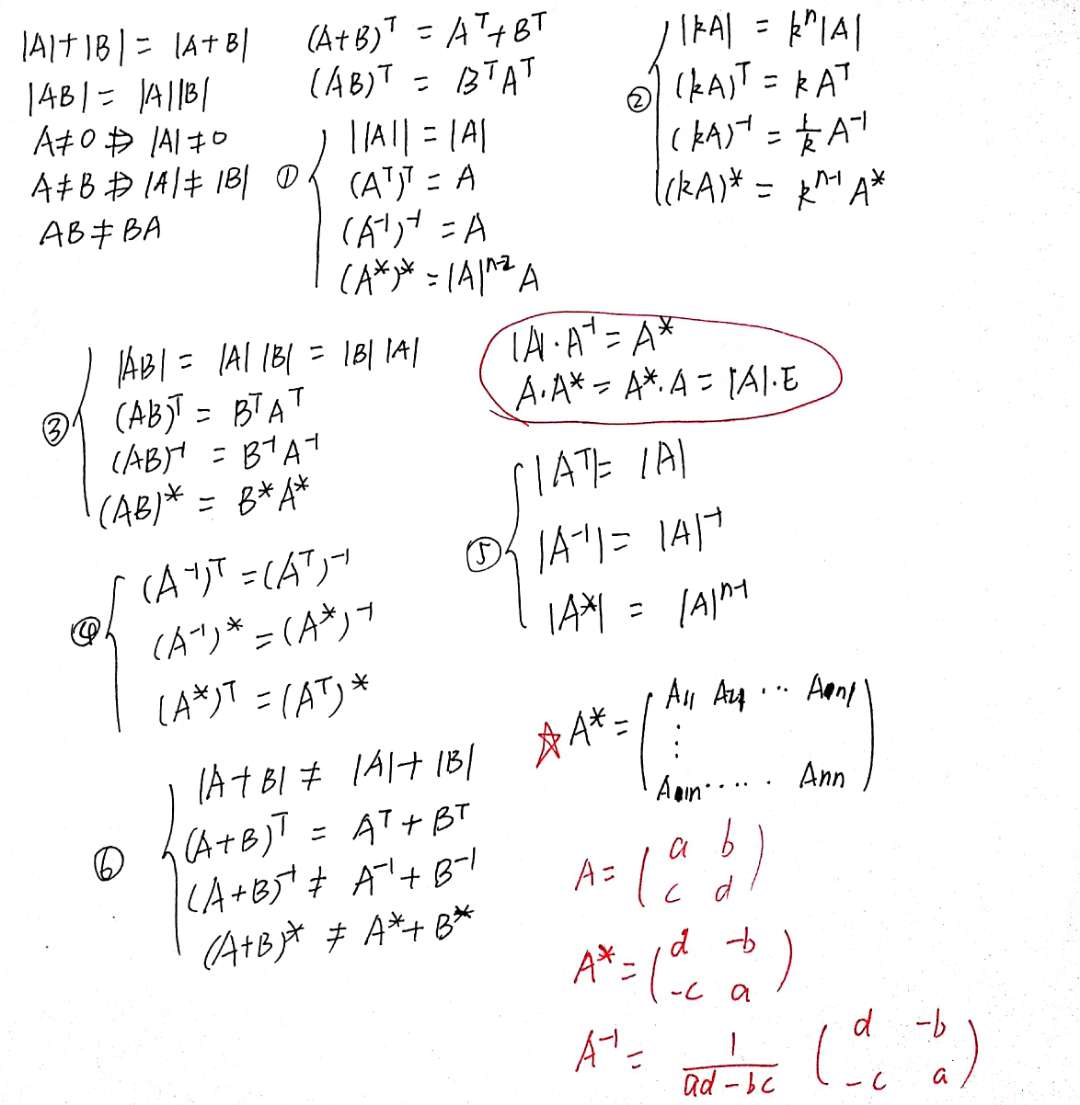 |A|+|B| = |A+B|
|AB| = |A||B|
A≠0 ⇏ |A|≠0
A≠B ⇏ |A|≠|B|
AB≠BA
(A+B)ᵀ = Aᵀ+Bᵀ
(AB)ᵀ = BᵀAᵀ
①
||A|| = |A|
(Aᵀ)ᵀ = A
(A⁻¹)⁻¹ = A
(A*)* = |A|ⁿ⁻² A
②
|kA| = kⁿ|A|
(kA)ᵀ = kAᵀ
(kA)⁻¹ = 1/k A⁻¹
(kA)* = kⁿ⁻¹ A*
③
|AB| = |A| |B| = |B| |A|
(AB)ᵀ = BᵀAᵀ
(AB)⁻¹ = B⁻¹A⁻¹
(AB)* = B*A*
|A|·A⁻¹ = A*
A·A* = A*·A = |A|·E
④
(A⁻¹)ᵀ = (Aᵀ)⁻¹
(A⁻¹)* = (A*)⁻¹
(A*)ᵀ = (Aᵀ)*
⑤
|Aᵀ| = |A|
|A⁻¹| = |A|⁻¹
|A*| = |A|ⁿ⁻¹
⑥
|A+B| ≠ |A|+|B|
(A+B)ᵀ = Aᵀ+Bᵀ
(A+B)⁻¹ ≠ A⁻¹+B⁻¹
(A+B)* ≠ A*+B*
☆ A* = ( A₁₁ A₂₁ ··· Aₙ₁
⋮
A₁ₙ ····· Aₙₙ )
A = ( a b
c d )
A* = ( d -b
-c a )
A⁻¹ = 1/(ad-bc) ( d -b
-c a )